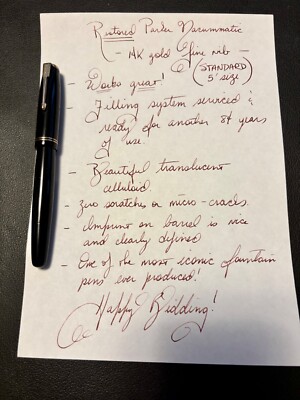 Restored Parker Vacummatic
- 14K gold fine nib -
(STANDARD
5" size)
- Works great!
- Filling system serviced &
ready for another 84 years
of use.
- Beautiful translucent
celluloid.
- zero scratches or micro-cracks.
- Imprint on barrel is nice
and clearly defined
- One of the most iconic fountain
pens ever produced!
Happy Bidding!